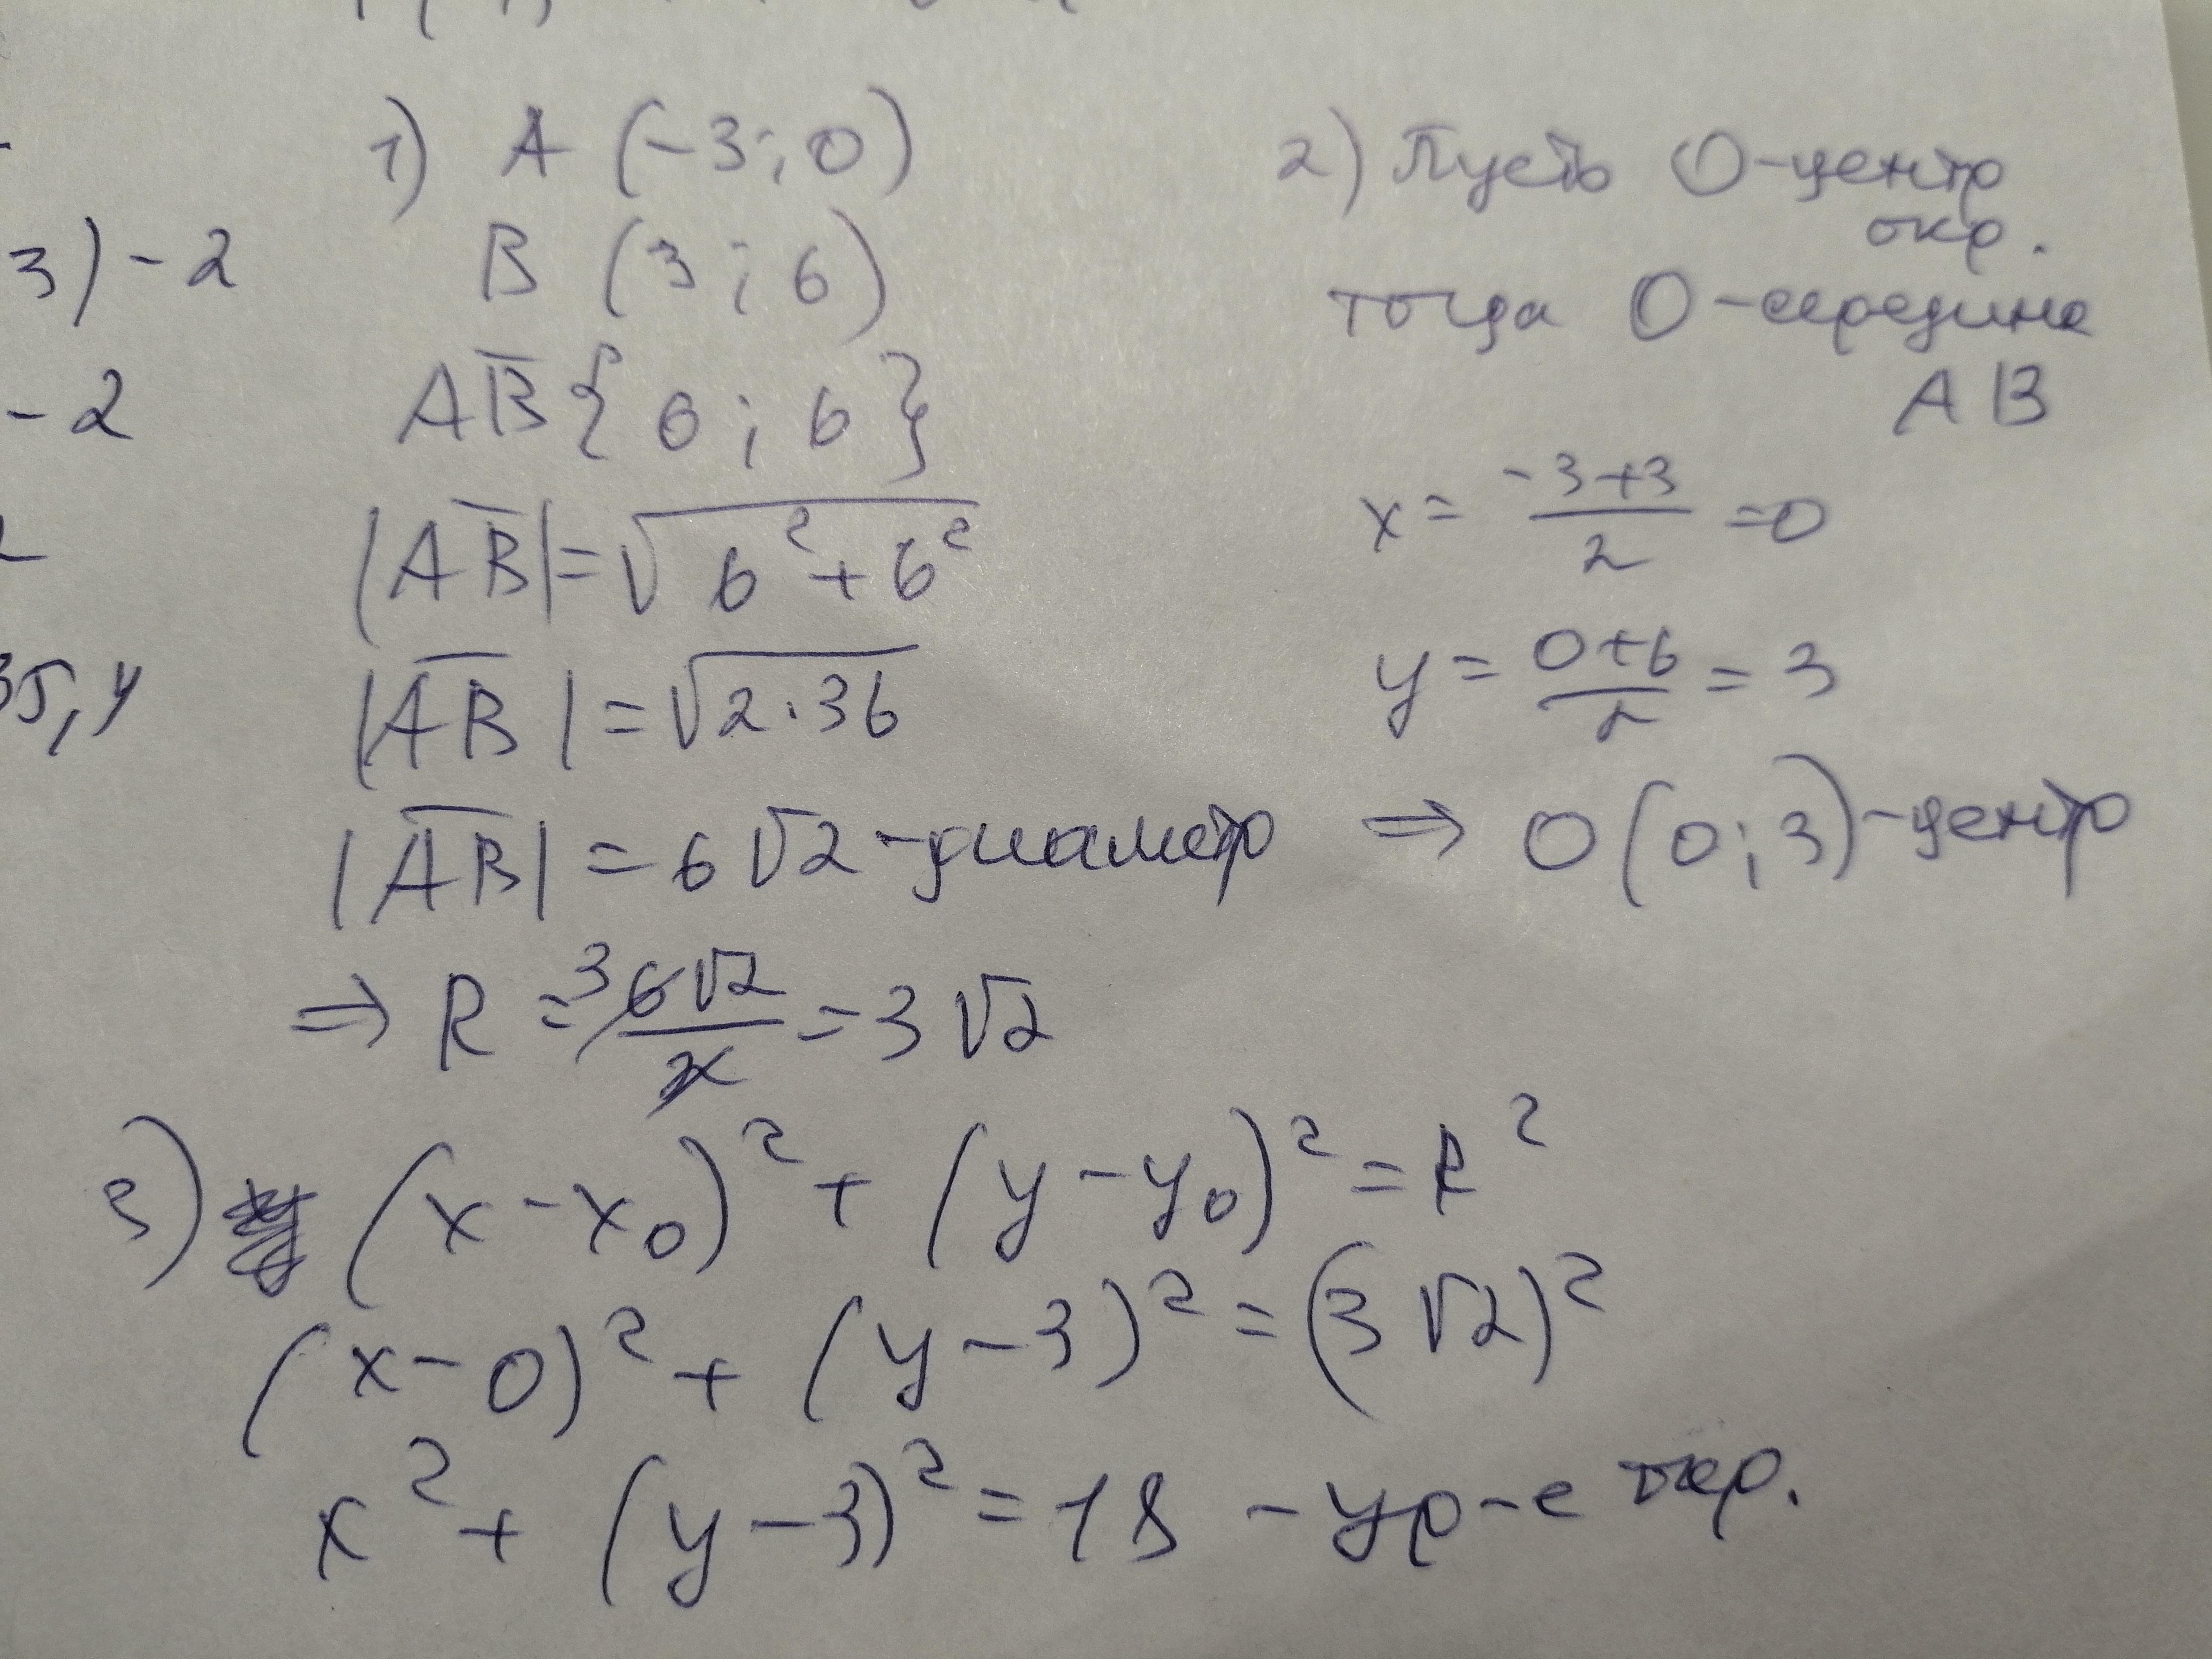 3) - 2
- 2
35, y
1) A (-3; 0)
B (3; 6)
AB̅ {6; 6}
|AB̅| = √(6² + 6²)
|AB̅| = √(2·36)
|AB̅| = 6√2 - диаметр
⇒ R = 6√2/2 = 3√2
3
2) Пусть O - центр
окр.
тогда O - середина
AB
x = (-3+3)/2 = 0
y = (0+6)/2 = 3
⇒ O (0; 3) - центр
3) (x - x₀)² + (y - y₀)² = R²
(x - 0)² + (y - 3)² = (3√2)²
x² + (y - 3)² = 18 - ур-е окр.